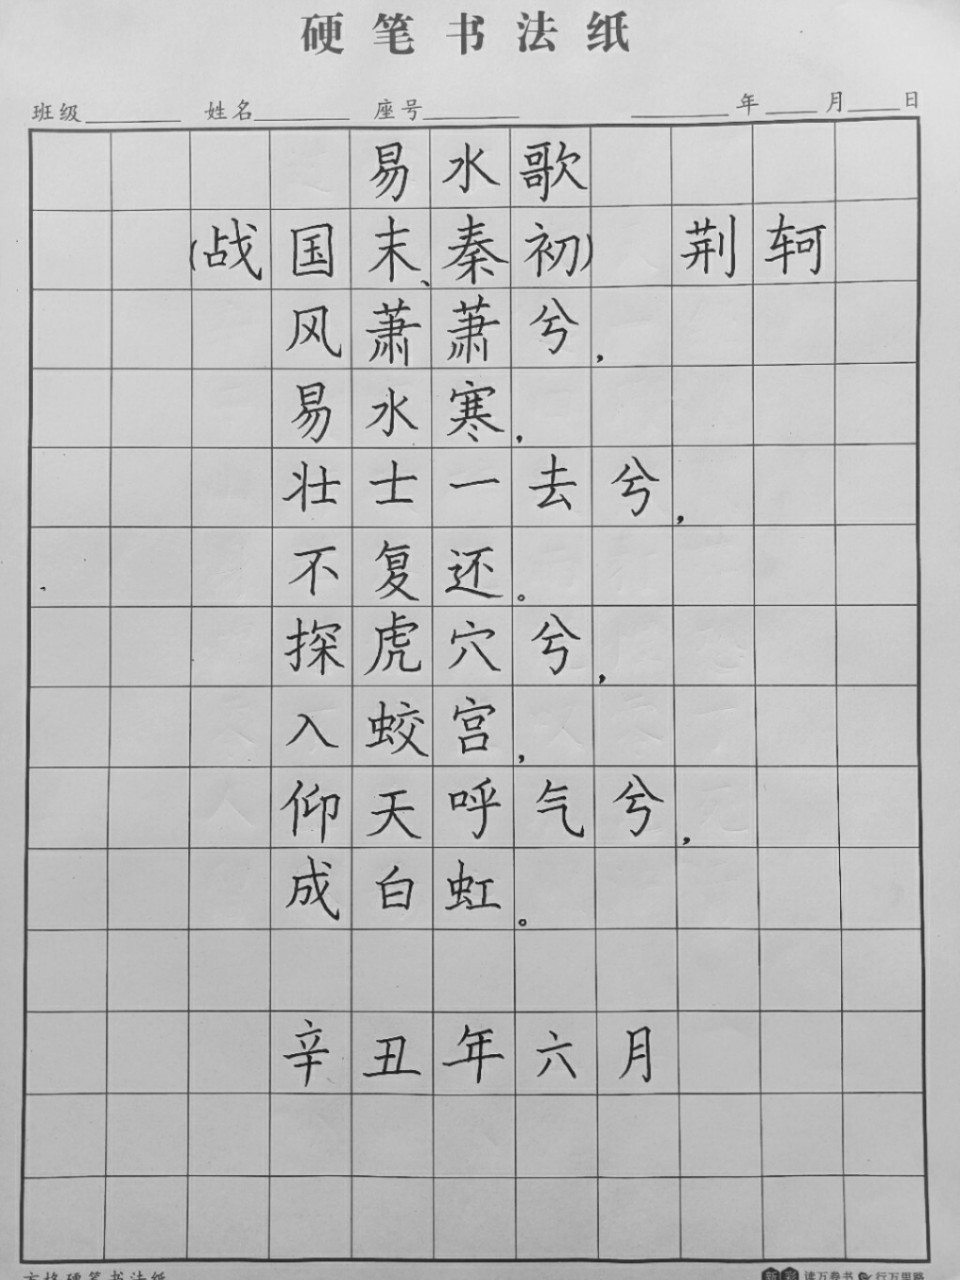 硬笔书法纸
班级 姓名 座号 年 月 日
易水歌
(战国末、秦初) 荆轲
风萧萧兮，
易水寒，
壮士一去兮，
不复还。
探虎穴兮，
入蛟宫，
仰天呼气兮，
成白虹。
辛丑年六月
方格硬笔书法纸
读万卷书 行万里路